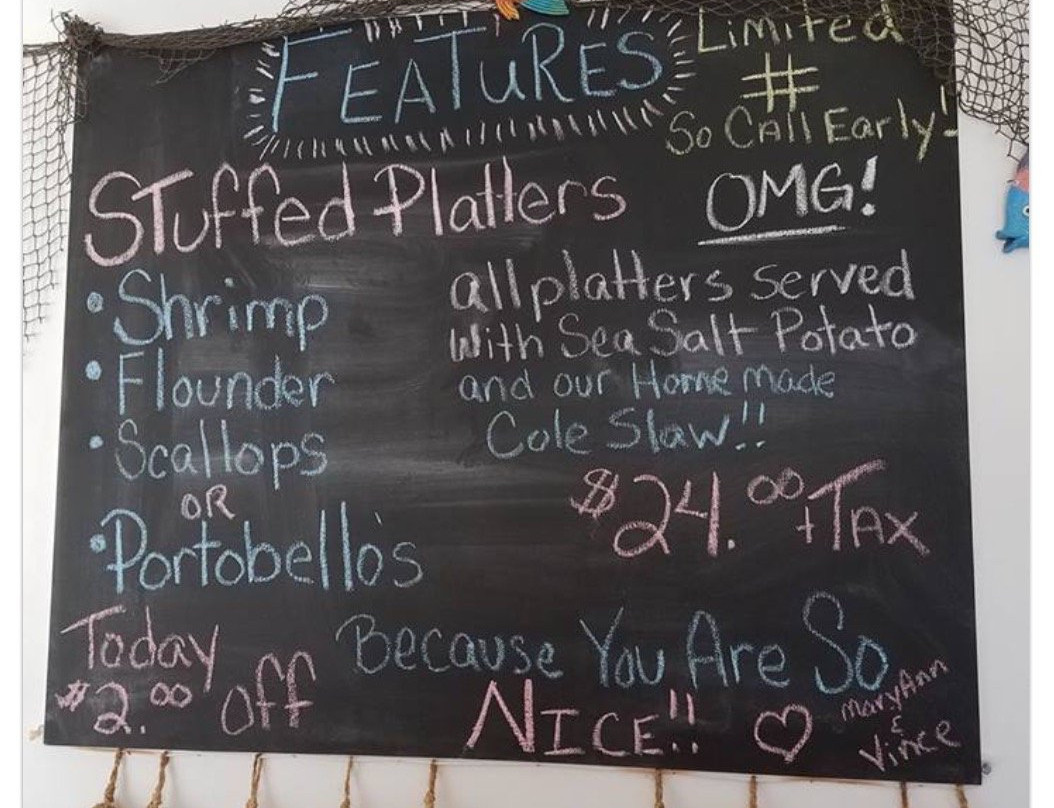 FEATURES
Limited
#
So CAll Early!
STuffed Platters
OMG!
• Shrimp
• Flounder
• Scallops
OR
• Portobello's
all platters served
With Sea Salt Potato
and our Home made
Cole Slaw!!
$24.00 + TAX
Today
$2.00 off
Because You Are So
NICE!!
♡
MaryAnn
&
Vince